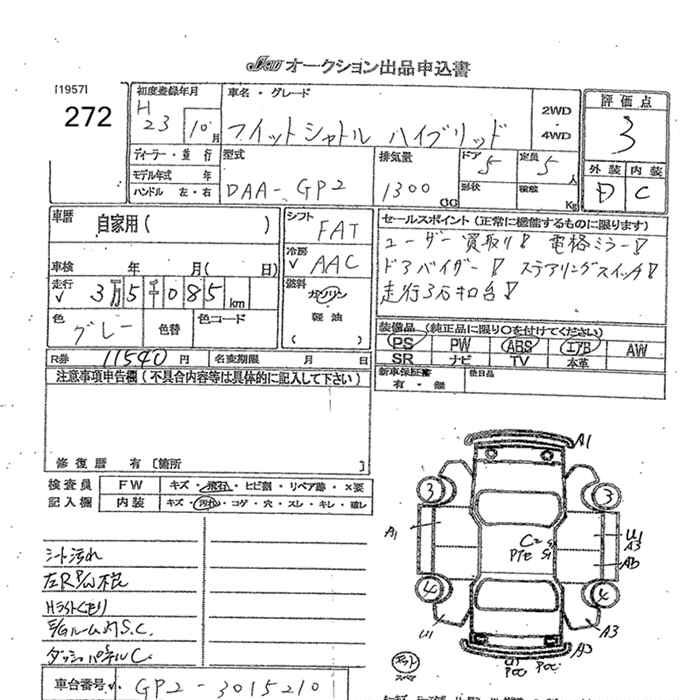 JAU オークション出品申込書
[1957]
272
初度登録年月 H 23 10月
車名・グレード フィットシャトル ハイブリッド
2WD ・ 4WD
評価点 3
外装 内装
D C
ディーラー・並行
モデル年式 年
ハンドル 左・右
型式 DAA-GP2
排気量 1300 CC
ドア 5 定員 5 人
形状 積載 Kg
車歴 自家用( )
車検 年 月( 日)
走行 √ 3万5千085 km
色 グレー 色替 色コード
シフト FAT
冷房 √ AAC
燃料 ガソリン ・ 軽油 ( )
セールスポイント(正常に機能するものに限ります)
ユーザー買取り! 電格ミラー!
ドアバイザー! ステアリングスイッチ!
走行3万キロ台!
装備品(純正品に限り○を付けてください)
PS PW ABS エアB AW
SR ナビ TV 本革
新車保証書 有・無 後日品
R券 11540 円 名変期限 月 日
注意事項申告欄(不具合内容等は具体的に記入して下さい)
修復歴 有 [箇所 ]
検査員 FW キズ・飛石・ヒビ割・リペア跡・X要
記入欄 内装 キズ・汚れ・コゲ・穴・スレ・キレ・破レ
シート汚れ
Hライトくもり
E/Gルーム内S.C.
ダッシュパネルC
車台番号 GP2-3015210
A1
3 3
A1
C2 S1
PTE S1
U1
A3
AB
4 4
U1
A3
U1
POC POC
スペア